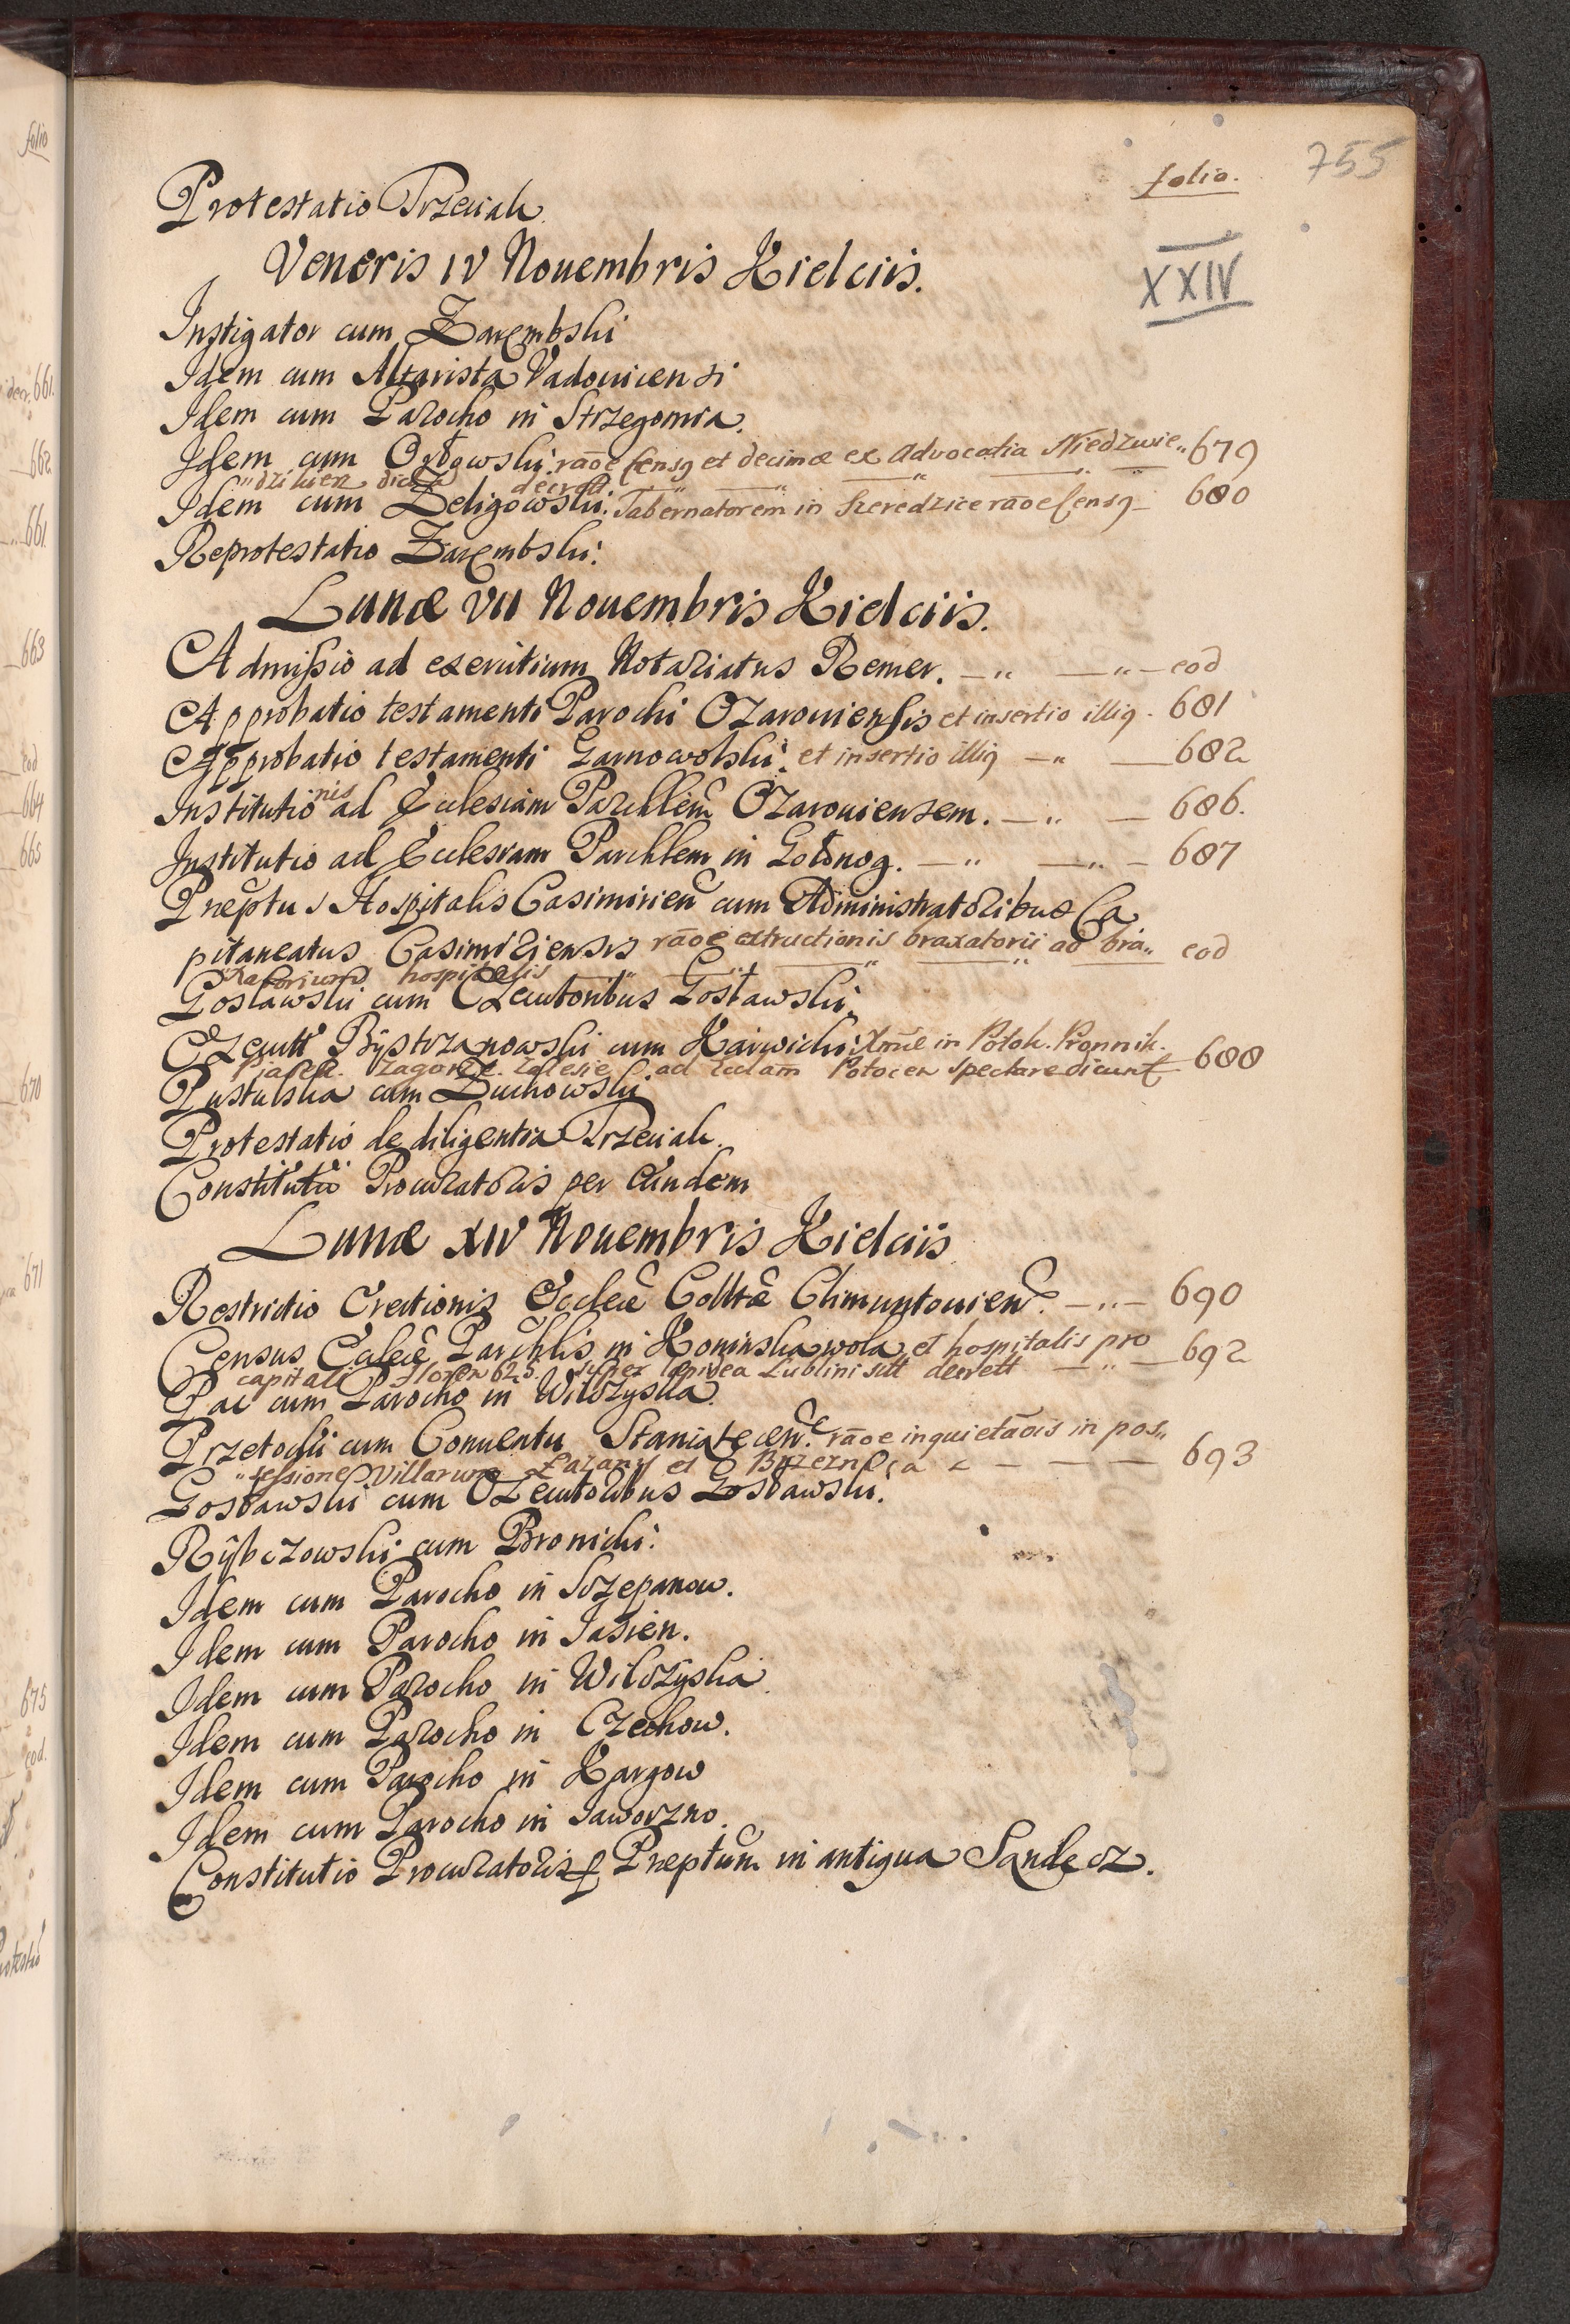 folio.
755
XXIV
Protestatio Trzeciak
Veneris IV Nouembris Kielciis.
Instigator cum Zarembski
Idem cum Altarista Vadouiensi
Idem cum Parocho in Strzegomia.
Idem cum Orłowski. rãoe censꝯ et decimæ ex Advocatia Niedzwie„ 679
„dzikien dicta decret.
Idem cum Zeligowski. Tabernatorem in Skeredzice rãoe censꝯ 680
Reprotestatio Zarembski.
Lunæ VII Nouembris Kielciis.
Admissio ad exercitium Notariatus Remer. — „ — „ — eod
Approbatio testamenti Parochi Ozarouiensis et insertio illiꝯ. 681
Approbatio testamenti Garnowolski. et insertio illiꝯ — „ — 682
Institutionis ad Ecclesiam Parchlem Ozarouiensem. — „ — 686.
Institutio ad Ecclesiam Parchlem in Gołonog. — „ — „ — 687
Pneptus Hospitalis Casimirien cum Administratoribus Ca
pitaneatus Casimiriensis rãoe extructionis braxatorii ad bra„ eod
xatorium hospitalis
Gosławski cum Exequutoribus Gosławski.
Exequtt Bystrzanowski cum Karwicki. Xmæ in Potok. Pronnik.
Piasek. Zagorze. Zalesie ad Eccłam Potocen spectare dicunt 688
Pustulska cum Zuchowski
Protestatio de diligentia Trzeciak.
Constitutio Procuratoris per eundem
Lunæ XIV Nouembris Kielciis
Restrictio Erectionis Eccleæ Colltæ Climuntouien. — „ — 690
Census Eccleæ Parchlis in Koninska wola et hospitalis pro
capitali floren 625. super lapidea Lublini sitt decrett — „ — 692
Pac cum Parocho in Wilczyska.
Przetocki cum Conuentu Staniatecen. rãoe inquietãois in pos„
„sessione Villarum Łazany et Brzeznica — — — — 693
Gosławski cum Exequutoribus Gosławski.
Rybczowski cum Bronicki.
Idem cum Parocho in Sczepanow.
Idem cum Parocho in Jasien.
Idem cum Parocho in Wilczyska
Idem cum Parocho in Czechow.
Idem cum Parocho in Kargow
Idem cum Parocho in Jaworzno.
Constitutio Procuratoris p Pneptum in antiqua Sandecz.